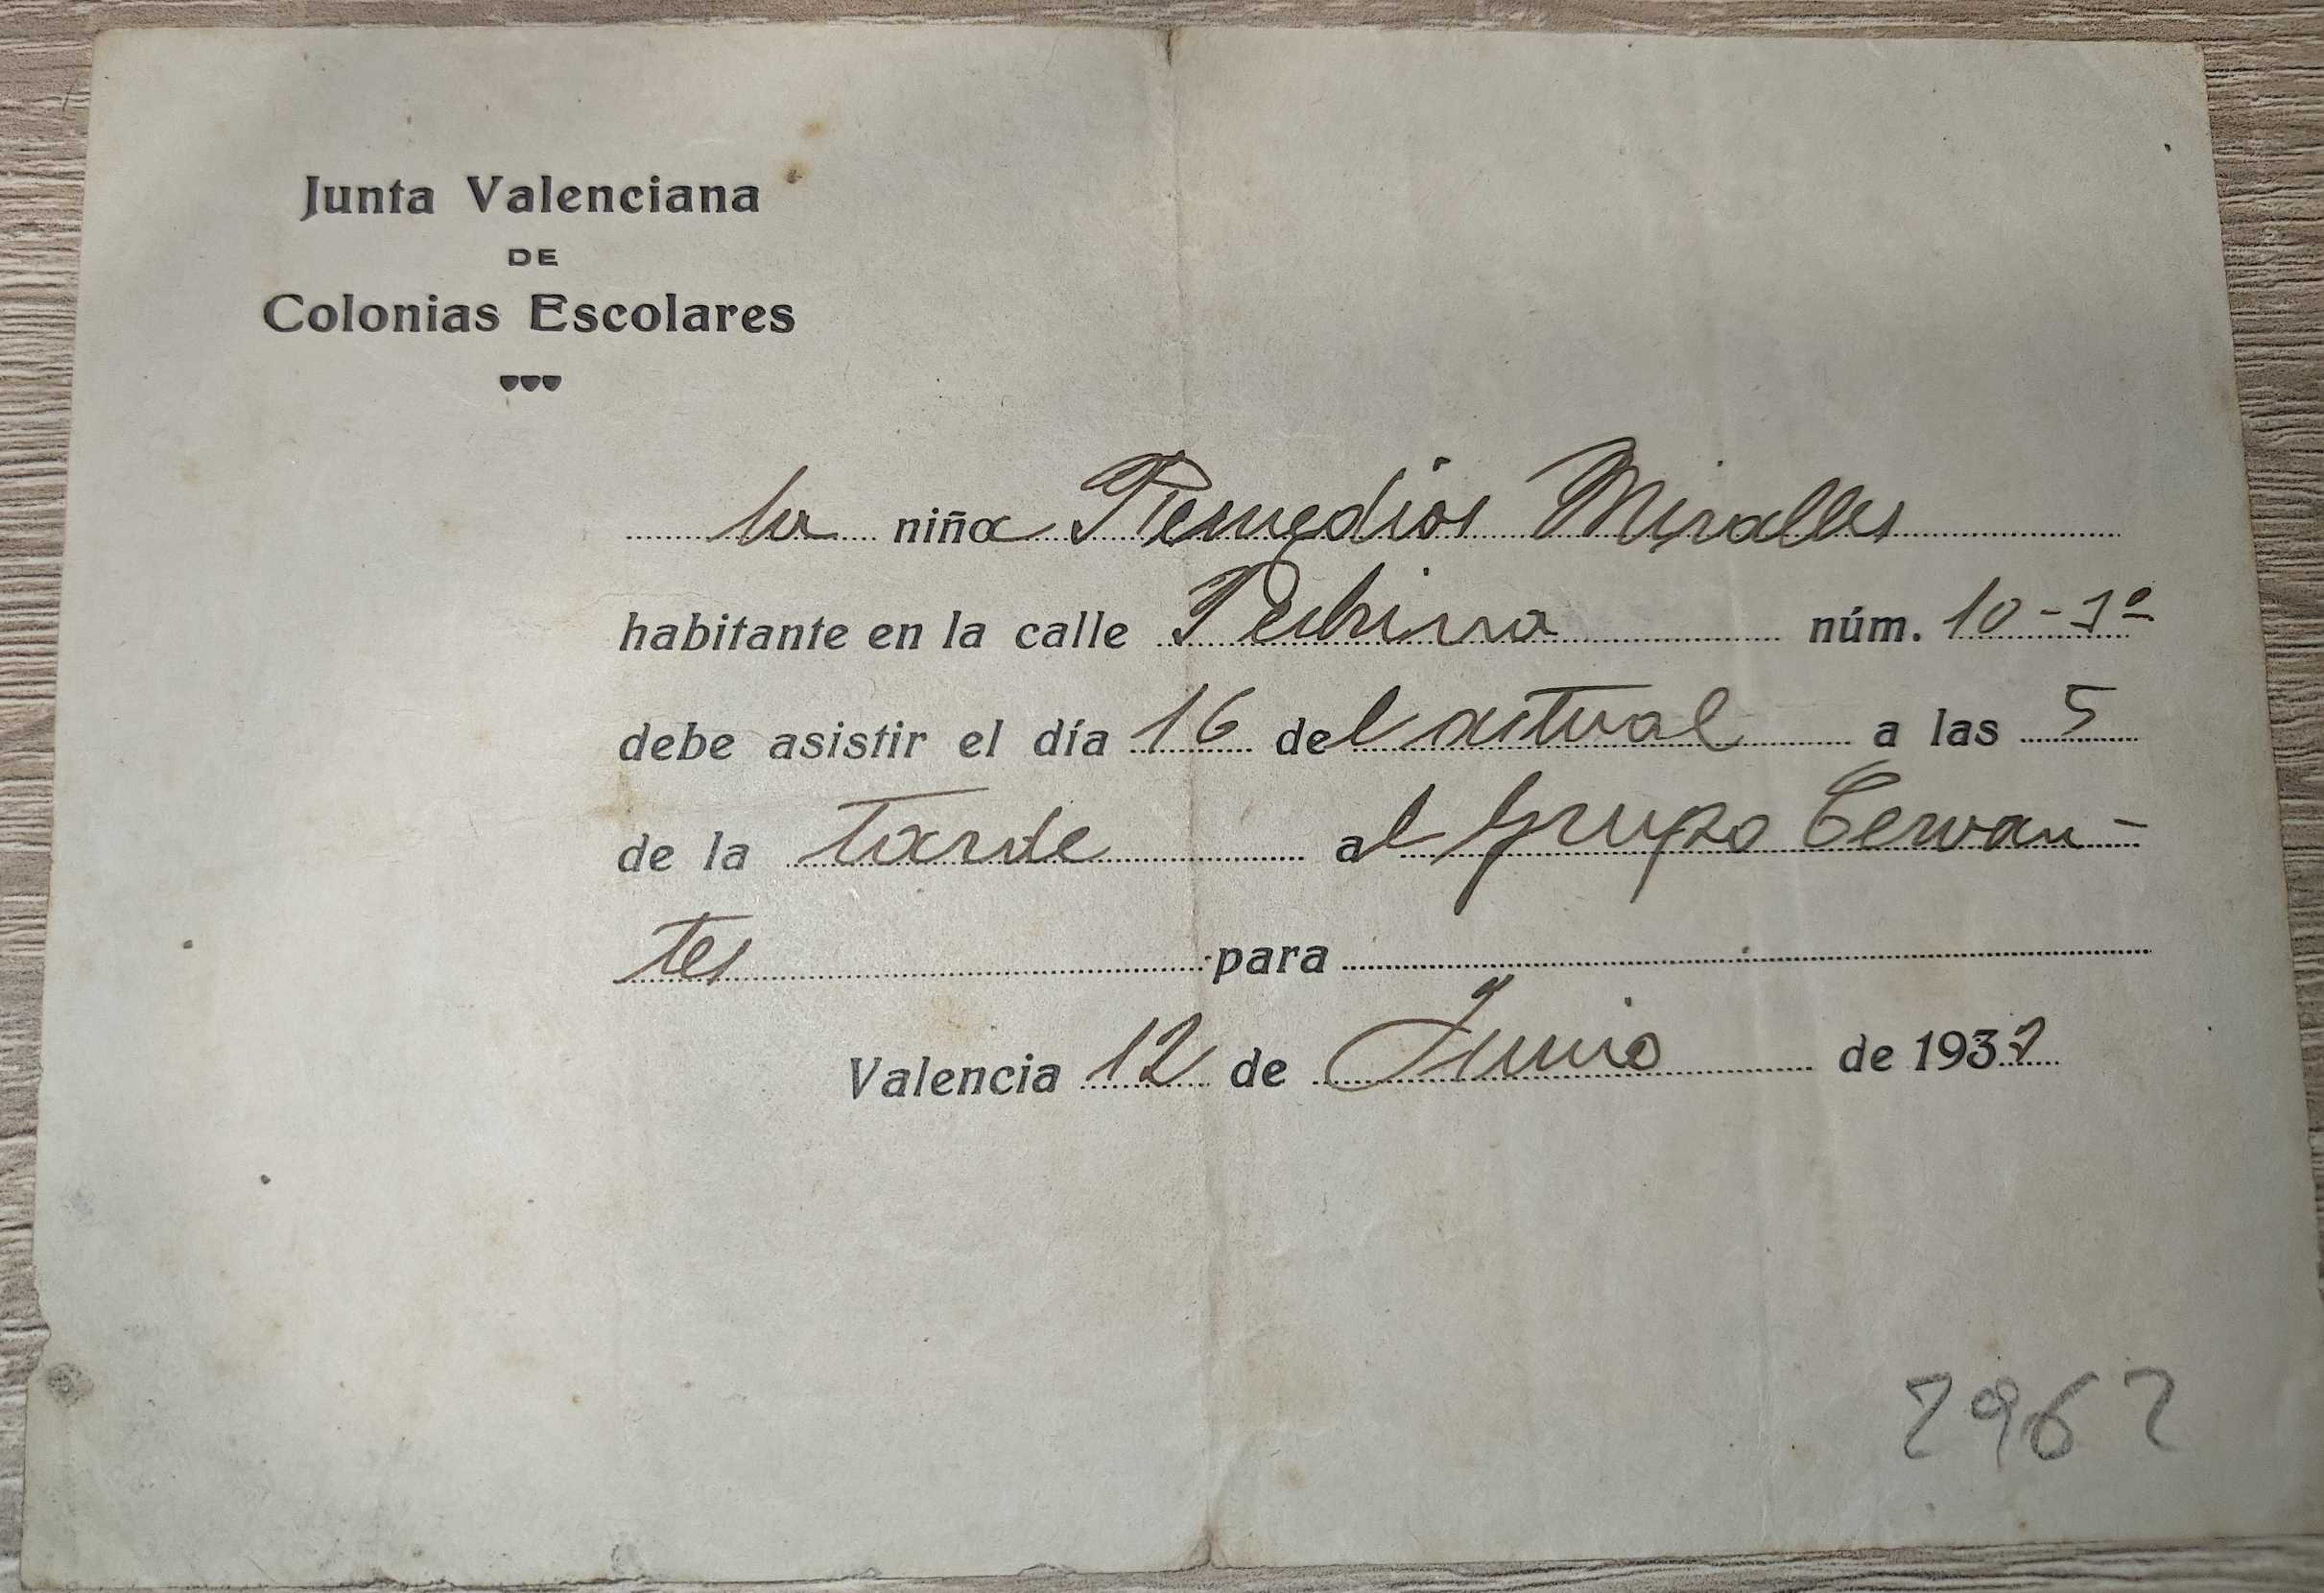 Junta Valenciana
DE
Colonias Escolares
la niña Remedios Miralles
habitante en la calle Pechina núm. 10-1º
debe asistir el día 16 del actual a las 5
de la tarde al Grupo Cervan-
tes para
Valencia 12 de Junio de 193
2962